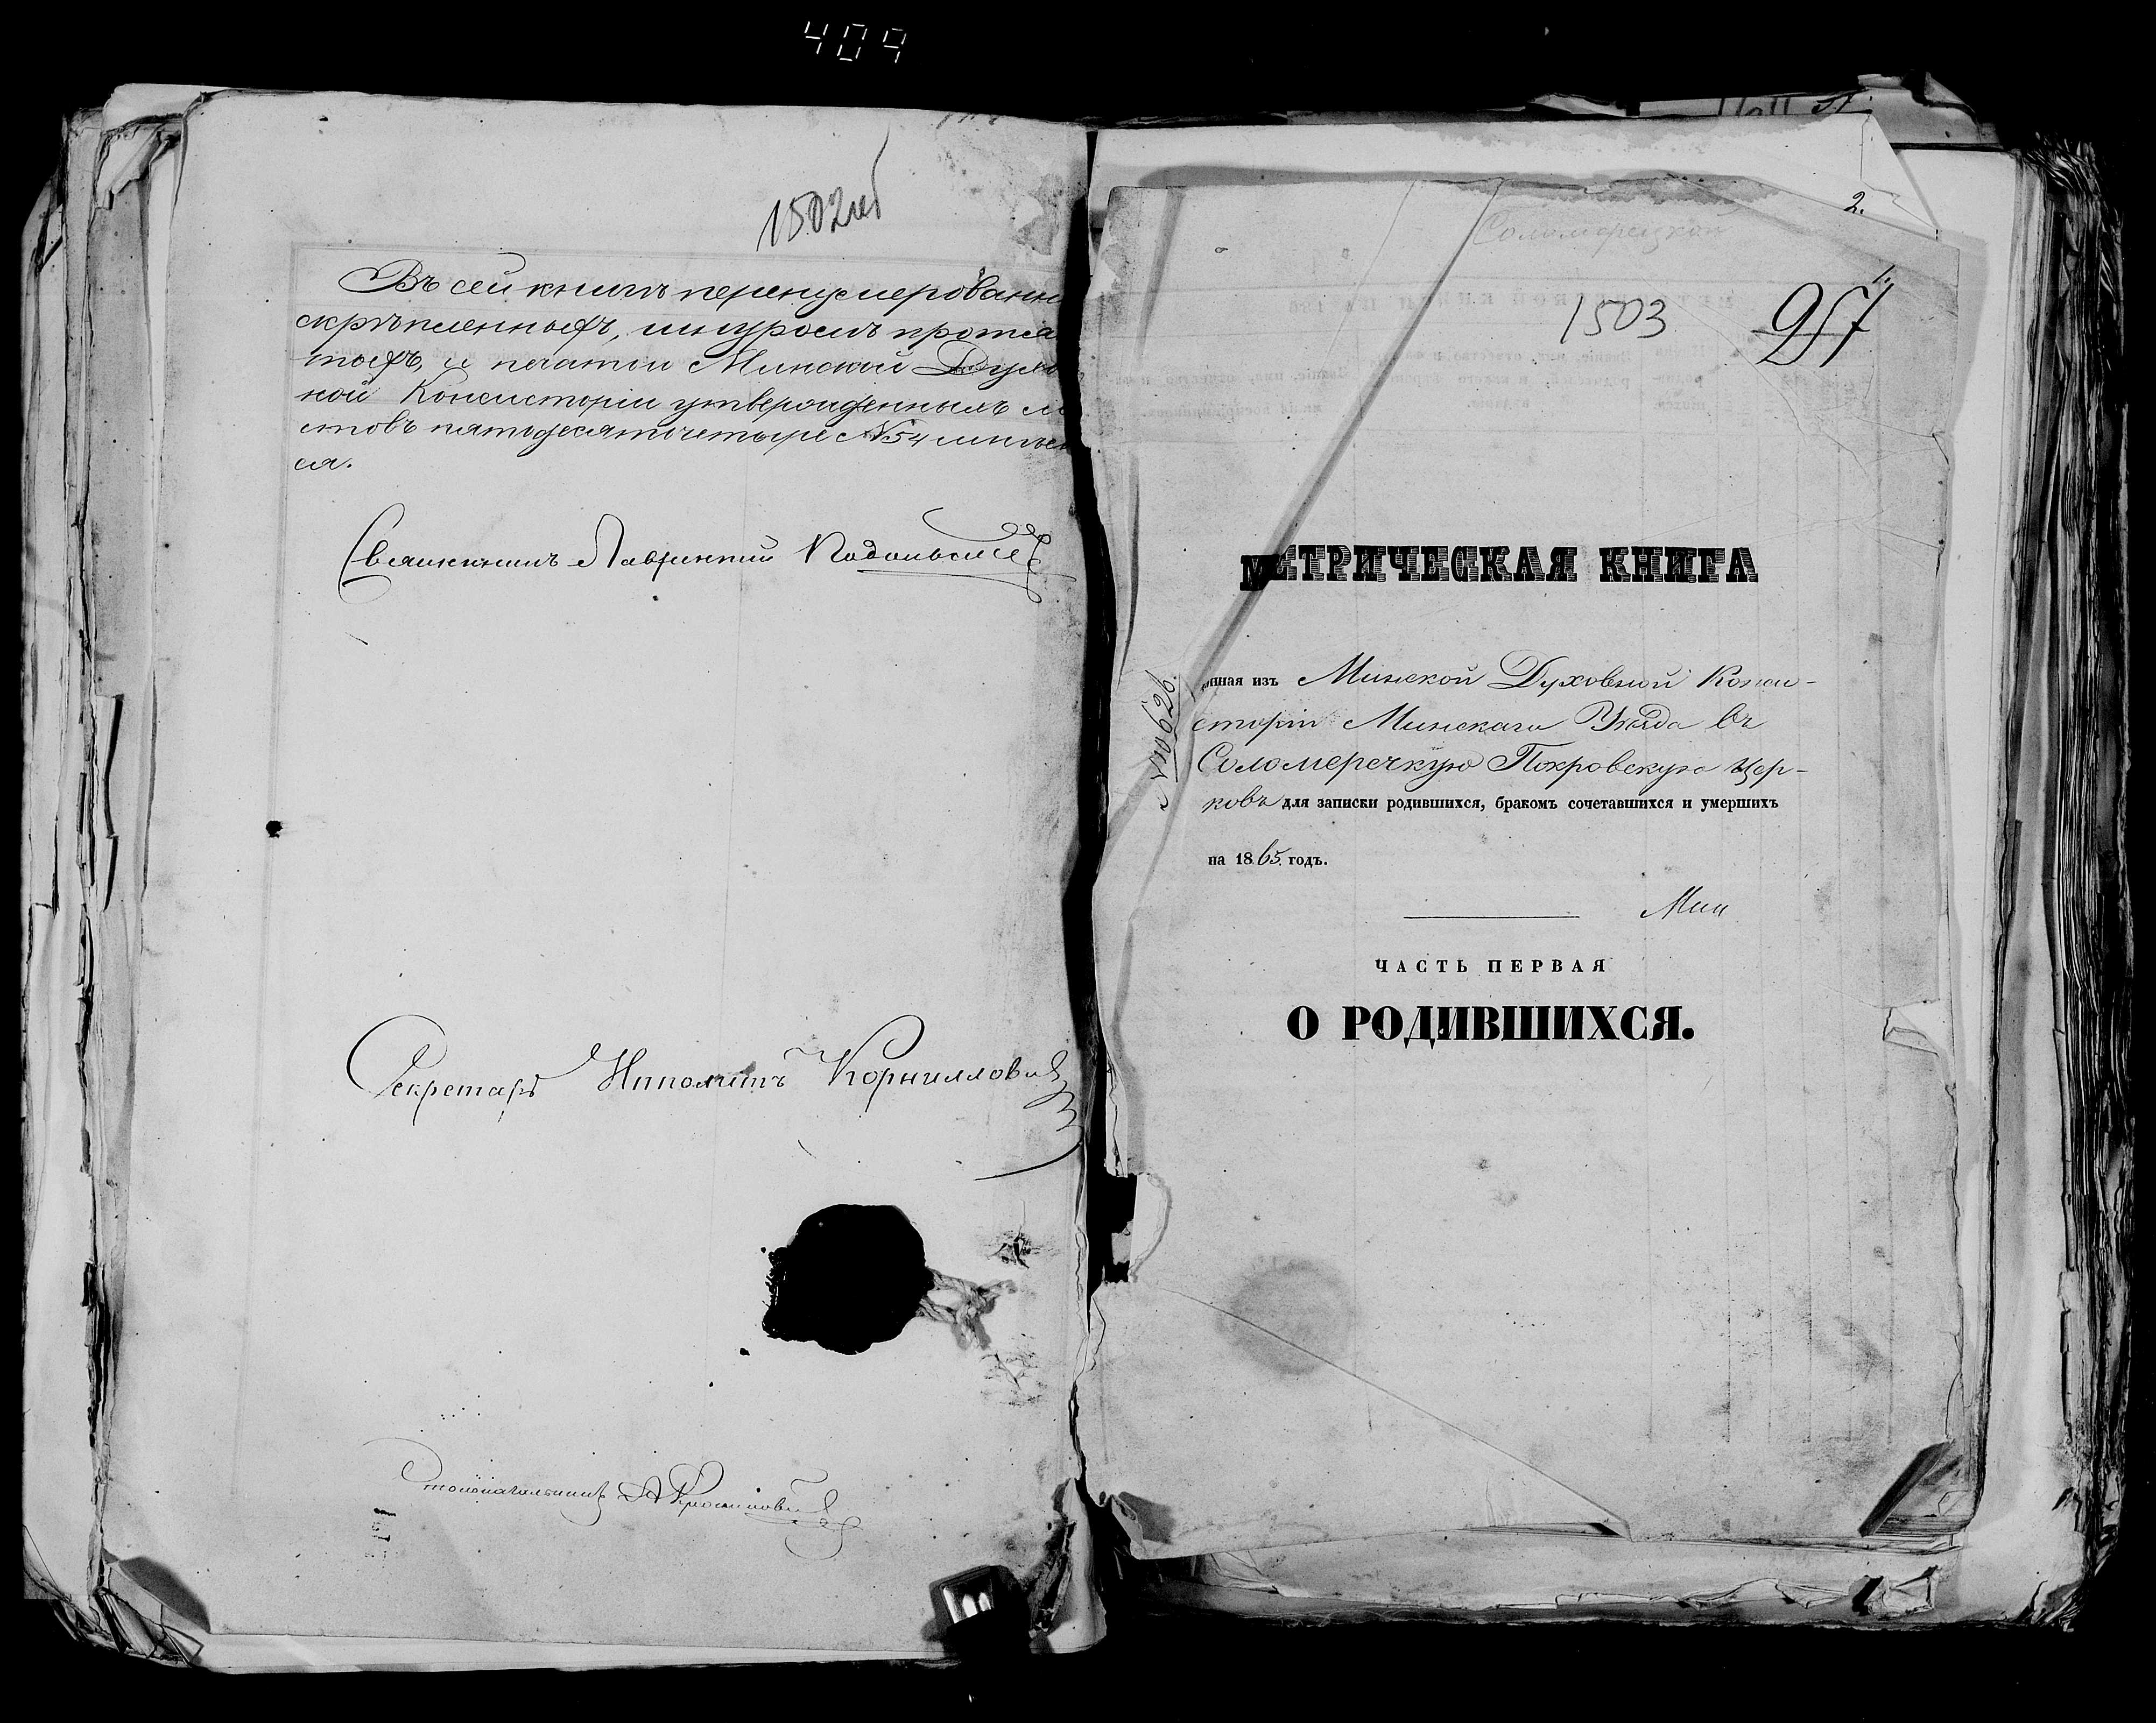 409
1502об
Въ сей книгѣ перенумерованн
скрѣпленныхъ, шнуромъ протя
тыхъ, и печатью Минской Духов
ной Консисторіи утвержденныхъ ли
стовъ пятьдесятъ четыре №54 имѣет
ся.
Священникъ Лаврентій Подольскій
Секретарь Ипполитъ Корниллови
Столоначальникъ
2.
Соломерецкой
1.
1503
957
МЕТРИЧЕСКАЯ КНИГА
нная изъ Минской Духовной Конси-
сторіи Минскаго Уѣзда въ
Соломеречкую Покровскую Цер-
ковь для записки родившихся, бракомъ сочетавшихся и умершихъ
на 1865 годъ.
Мин
ЧАСТЬ ПЕРВАЯ
О РОДИВШИХСЯ.
№10626.